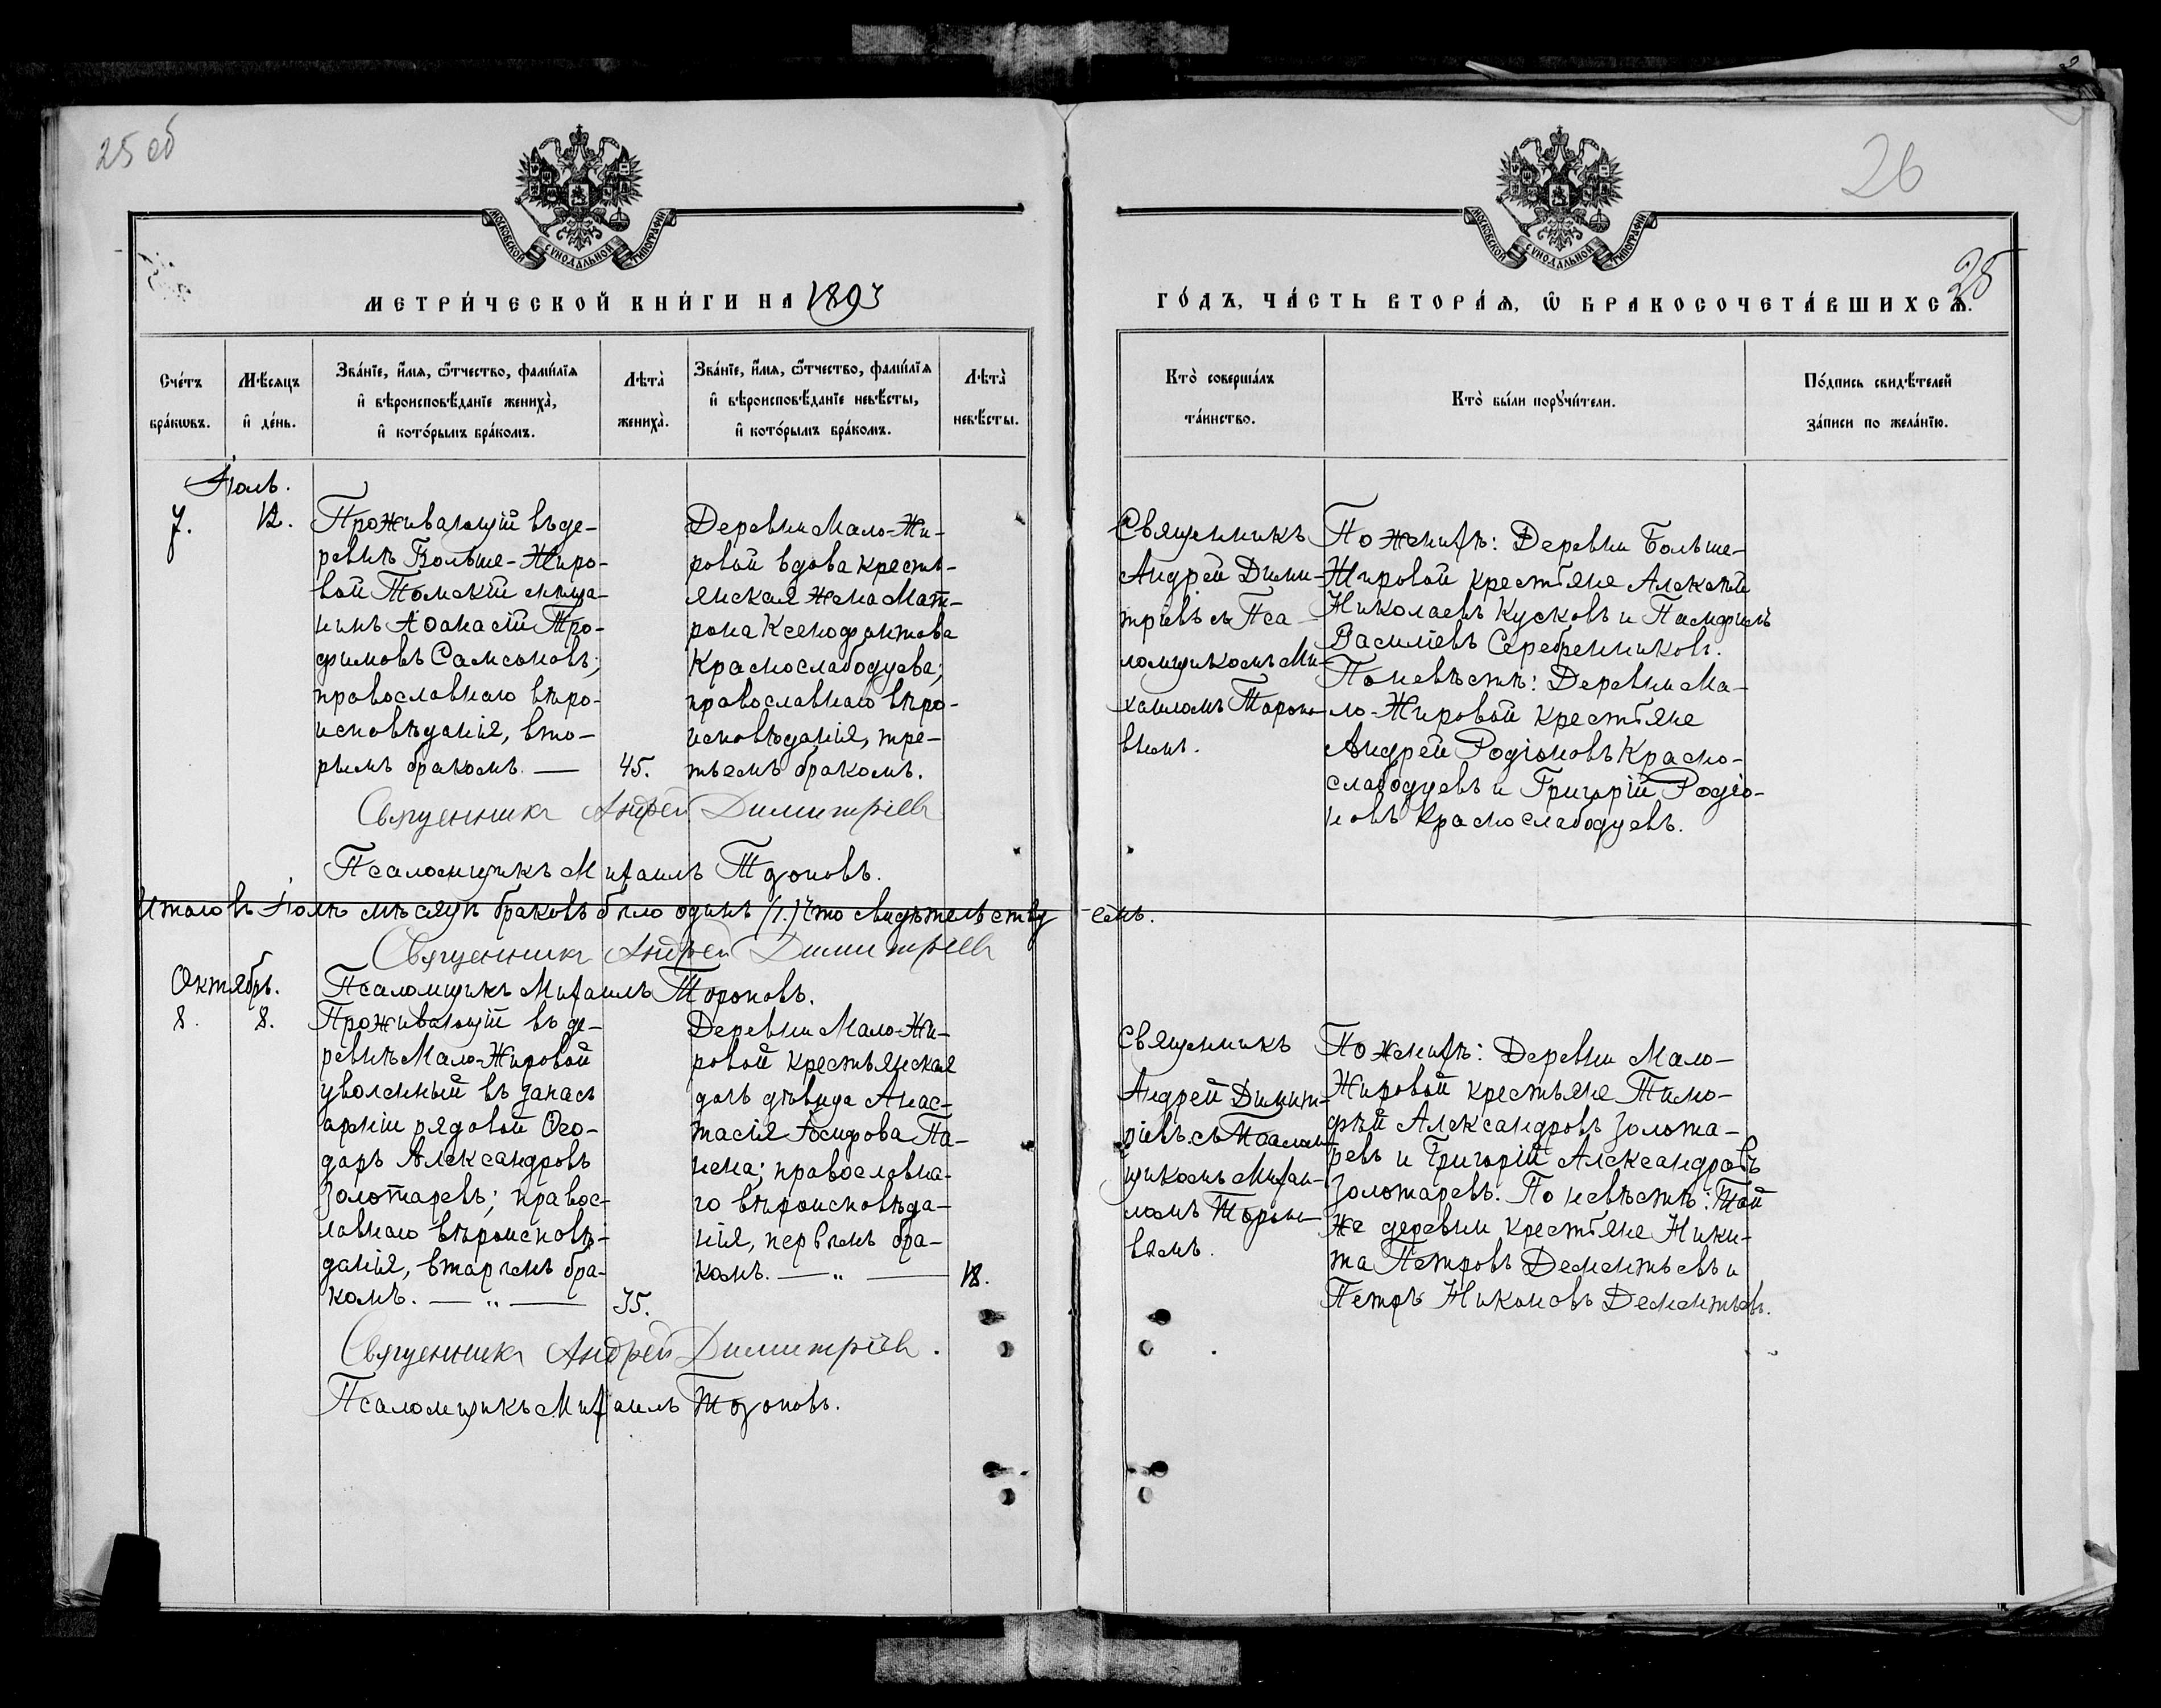 25 об
26
25
МОСКОВСКОЙ СѴНОДАЛЬНОЙ ТИПОГРАФІИ
МОСКОВСКОЙ СѴНОДАЛЬНОЙ ТИПОГРАФІИ
МЕТРИ́ЧЕСКОЙ КНИ́ГИ НА 1893
ГО́ДЪ, ЧА́СТЬ ВТОРА́Ѧ, Ѡ҆ БРАКОСОЧЕТА́ВШИХСѦ.
Сче́тъ бра́кѡвъ.
Мѣ́сяцъ и҆ де́нь.
Зва́нїе, и҆́мя, ѻ҆́тчество, фами́лїя
и҆ вѣроисповѣ́данїе жениха̀,
и҆ кото́рымъ бра́комъ.
Лѣта̀ жениха̀.
Зва́нїе, и҆́мя, ѻ҆́тчество, фами́лїя
и҆ вѣроисповѣ́данїе невѣ́сты,
и҆ кото́рымъ бра́комъ.
Лѣта̀ невѣ́сты.
Кто̀ соверша́лъ
та́инство.
Кто̀ бы́ли порꙋчи́тели.
По́дпись свидѣ́телей
за́писи по жела́нїю.
Іюль.
7.
12.
Проживающій въ де-
ревнѣ Больше-Жиро-
вой Томскій мѣща-
нинъ Аѳанасій Тро-
фимовъ Самсоновъ;
православнаго вѣро-
исповѣданія, вто-
рымъ бракомъ. —
45.
Деревни Мало-Жи-
ровой вдова кресть-
янская жена Мат-
рона Ксенофонтова
Краснослабодцева;
православнаго вѣро-
исповѣданія, тре-
тьемъ бракомъ.
Священникъ
Андрей Дими-
тріевъ съ Пса-
ломщикомъ Ми-
хаиломъ Тороно-
вымъ.
По женихѣ: Деревни Больше-
Жировой крестьяне Алексѣй
Николаевъ Кусковъ и Памфилъ
Василіевъ Серебренниковъ.
По невѣстѣ: Деревни Ма-
ло-Жировой крестьяне
Андрей Родіоновъ Красно-
слабодцевъ и Григорій Родіо-
новъ Краснослабодцевъ.
Священникъ Андрей Димитріевъ
Псаломщикъ Михаилъ Тороновъ.
Итого въ Іюлѣ мѣсяцѣ браковъ было одинъ (1.) Что свидѣтельству-емъ.
Священникъ Андрей Димитріевъ
Псаломщикъ Михаилъ Тороновъ.
Октябрь.
8.
8.
Проживающій въ де-
ревнѣ Мало-Жировой
уволенный въ запасъ
арміи рядовой Ѳео-
доръ Александровъ
Золотаревъ; правос-
лавнаго вѣроисповѣ-
данія, вторымъ бра-
комъ. — „ —
35.
Деревни Мало-Жи-
ровой крестьянская
дочь дѣвица Анас-
тасія Іосифова Па-
нена; православна-
го вѣроисповѣда-
нія, первымъ бра-
комъ. — „ —
18.
Священникъ
Андрей Димит-
ріевъ съ Псалом-
щикомъ Михаи-
ломъ Тороно-
вымъ.
По женихѣ: Деревни Мало-
Жировой крестьяне Тимо-
фѣй Александровъ Золота-
ревъ и Григорій Александровъ
Золотаревъ. По невѣстѣ: Той
же деревни крестьяне Ники-
та Петровъ Дементьевъ и
Петръ Никоновъ Дементьевъ.
Священникъ Андрей Димитріевъ.
Псаломщикъ Михаилъ Тороновъ.